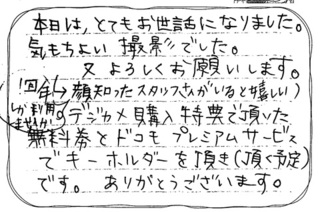 本日は、とてもお世話になりました。
気もちよい撮影でした。
又よろしくお願いします。
(回年→顔知ったスタッフさんがいると嬉しい)
しか利用しませんが
デジカメ購入特典で頂いた
無料券とドコモプレミアムサービス
でキーホルダーを頂き(頂く予定)
です。ありがとうございます。